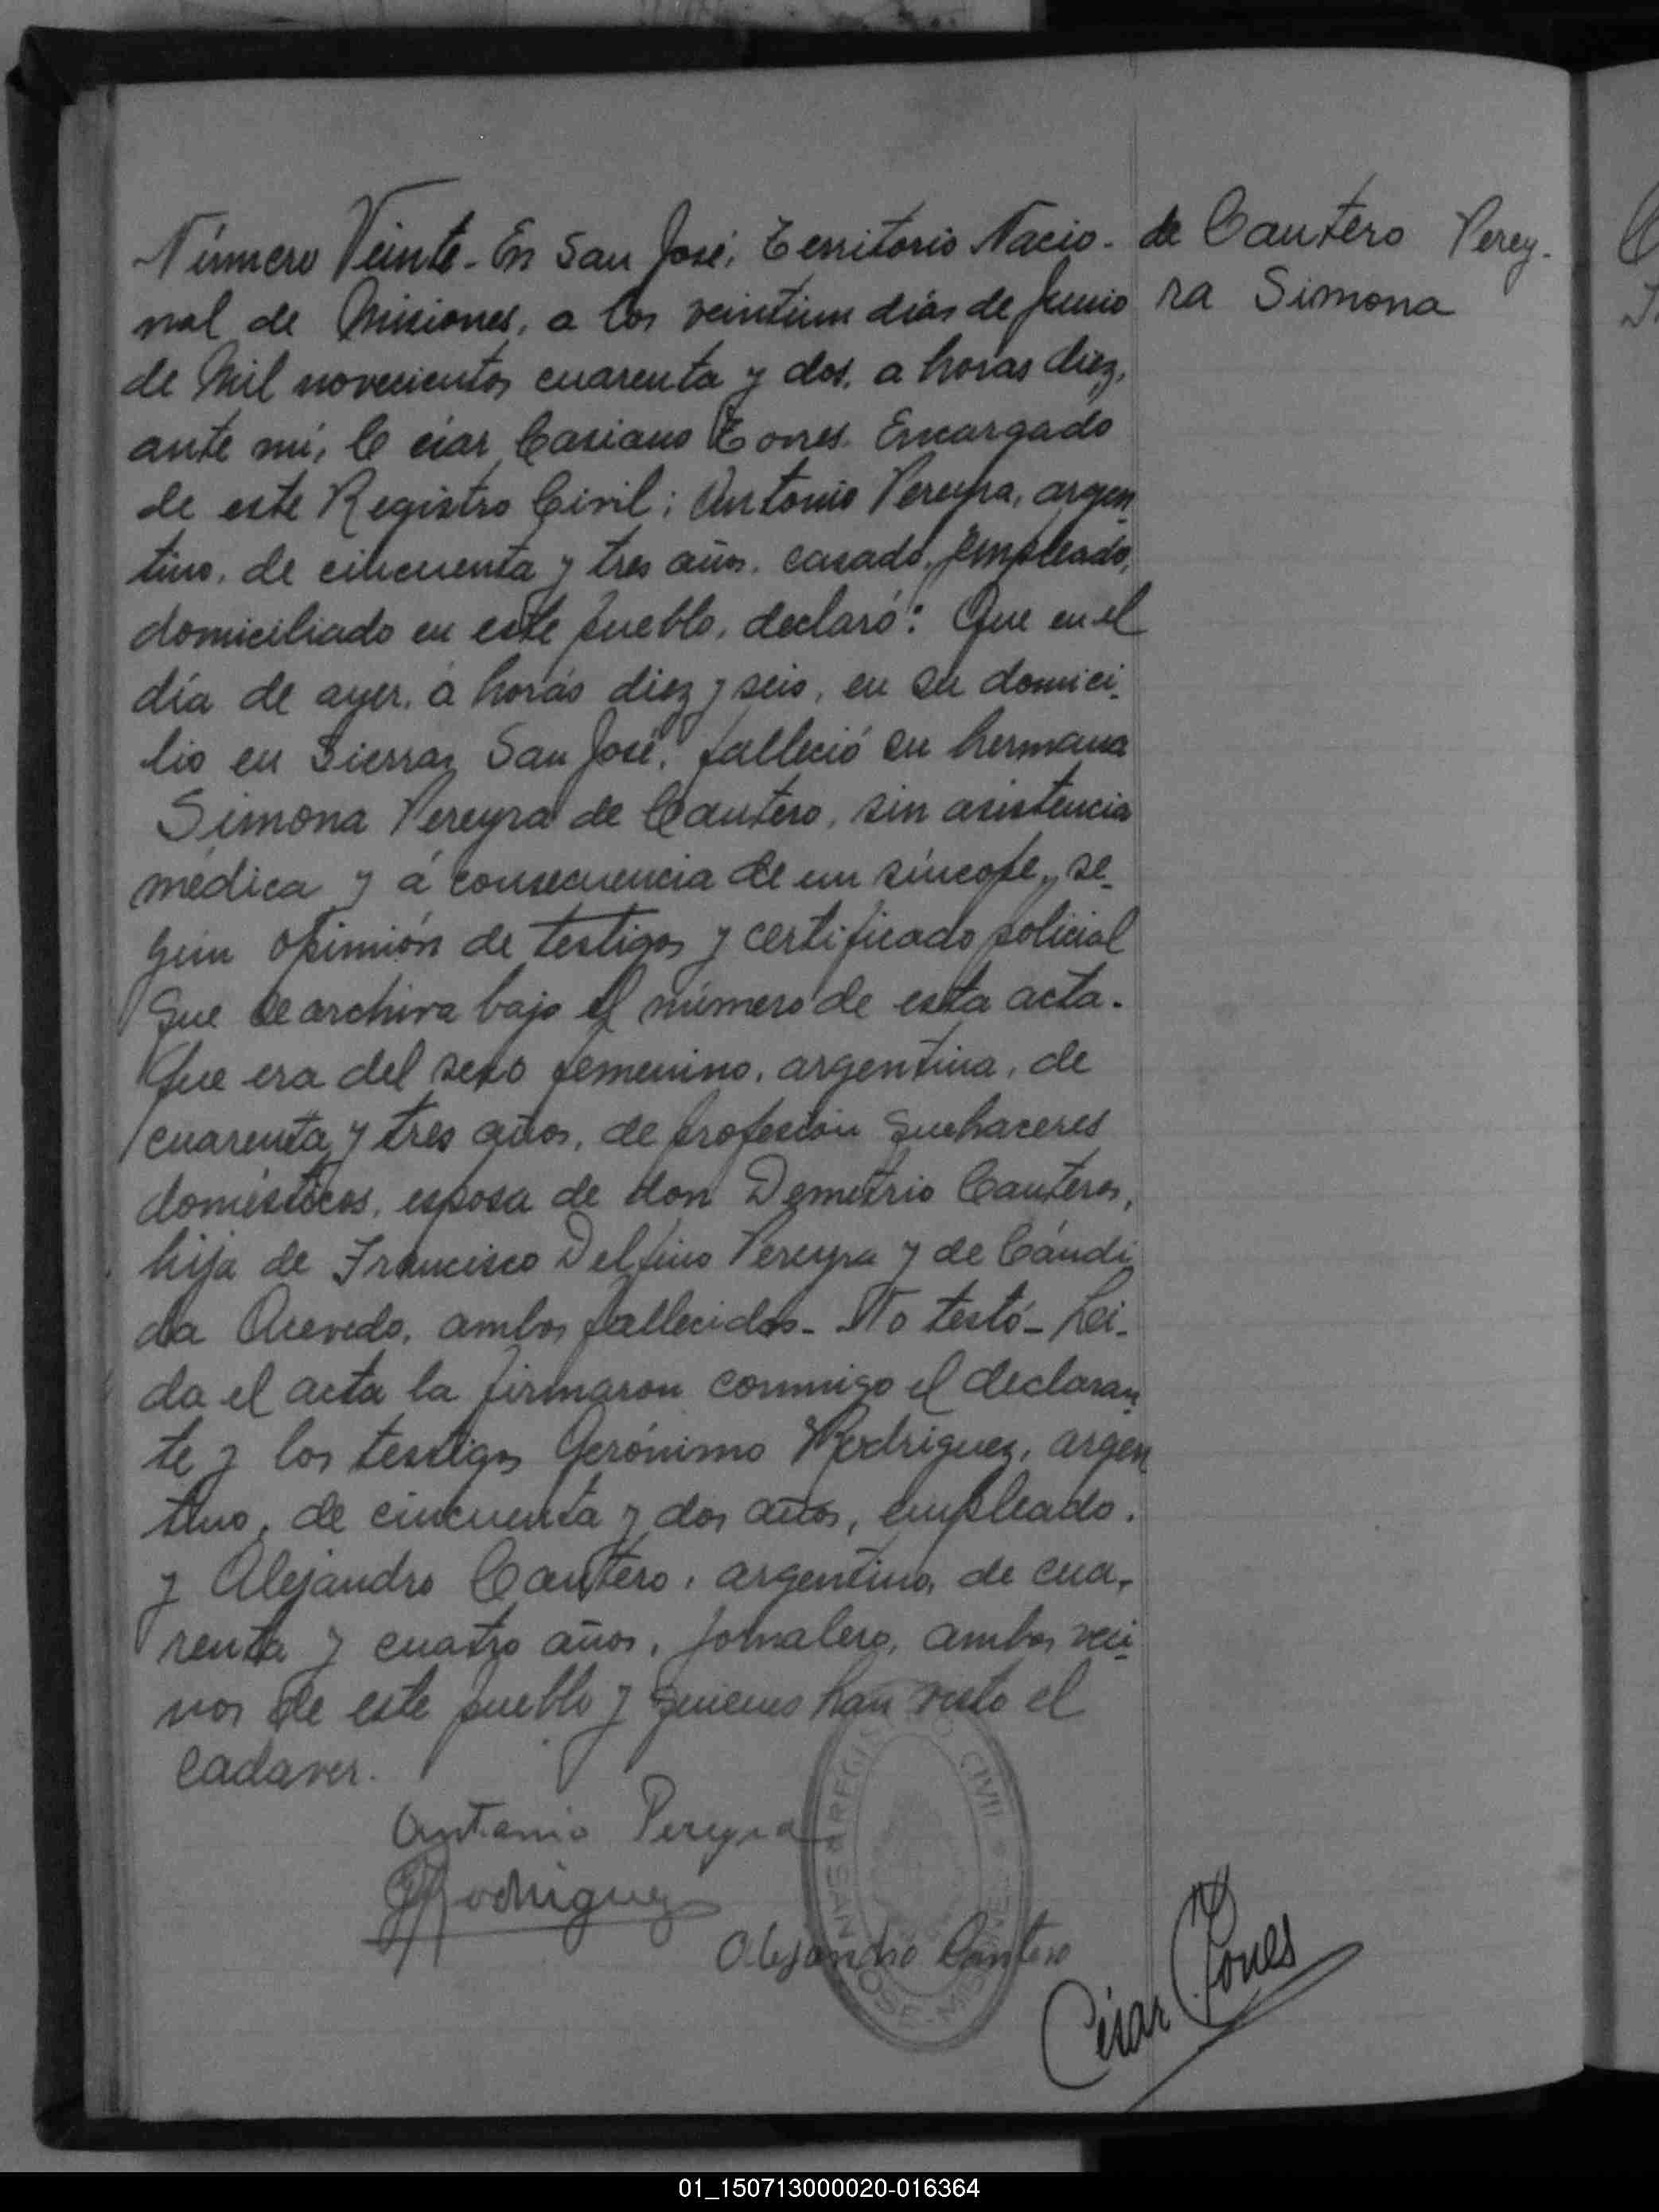 Número Veinte - En San José, Territorio Nacio-
nal de Misiones, a los veintiun dias de Junio
de Mil novecientos cuarenta y dos, a horas diez,
ante mí, César Casiano Torres. Encargado
de este Registro Civil; Antonio Pereyra, argen
tino, de cincuenta y tres años, casado, empleado,
domiciliado en este pueblo, declaró: Que en el
día de ayer, á horas diez y seis, en su domici-
lio en Sierras San José, falleció su hermana
Simona Pereyra de Cantero, sin asistencia
médica y á consecuencia de un síncope, se-
gún opinión de testigos y certificado policial
que se archiva bajo el número de esta acta.
Que era del sexo femenino, argentina, de
cuarenta y tres años, de profesión quehaceres
domésticos, esposa de don Demetrio Canteros,
hija de Francisco Delfino Pereyra y de Cándi
da Acevedo, ambos fallecidos - No testó - Lei-
da el acta la firmaron conmigo el declaran
te y los testigos Gerónimo Rodriguez, argen
tino, de cincuenta y dos años, empleado.
y Alejandro Cantero, argentino, de cua-
renta y cuatro años, jornalero, ambos veci-
nos de este pueblo y quienes han visto el
cadaver.
de Cantero Perey-
ra Simona
Antonio Pereyra
GRodriguez
Alejandro Cantero
César Torres
REGISTRO CIVIL
SAN JOSE - MISIONES
01_150713000020-016364